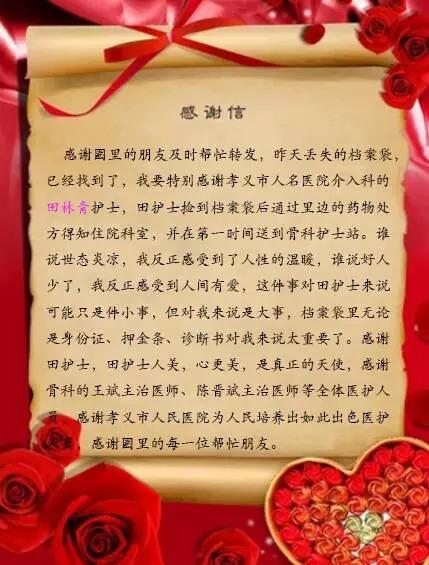 感谢信
感谢圈里的朋友及时帮忙转发，昨天丢失的档案袋，
已经找到了，我要特别感谢孝义市人名医院介入科的
田林青护士，田护士捡到档案袋后通过里边的药物处
方得知住院科室，并在第一时间送到骨科护士站。谁
说世态炎凉，我反正感受到了人性的温暖，谁说好人
少了，我反正感受到人间有爱，这件事对田护士来说
可能只是件小事，但对我来说是大事，档案袋里无论
是身份证、押金条、诊断书对我来说太重要了。感谢
田护士，田护士人美，心更美，是真正的天使，感谢
骨科的王斌主治医师、陈晋斌主治医师等全体医护人
员，感谢孝义市人民医院为人民培养出如此出色医护
人员，感谢圈里的每一位帮忙朋友。